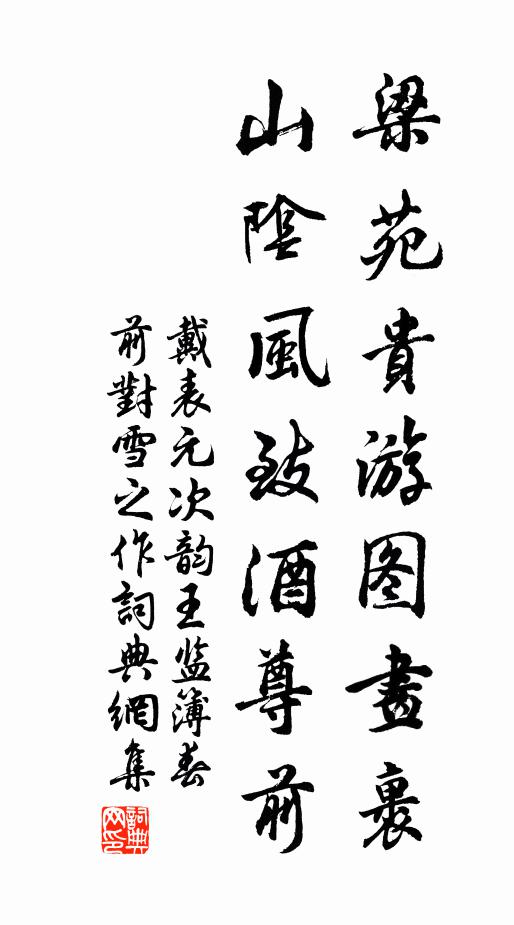 梁苑貴游图畫裹
山陰風致酒尊前
戴表元次韵王监簿春
前對雪之作詞典網集
詞典网印